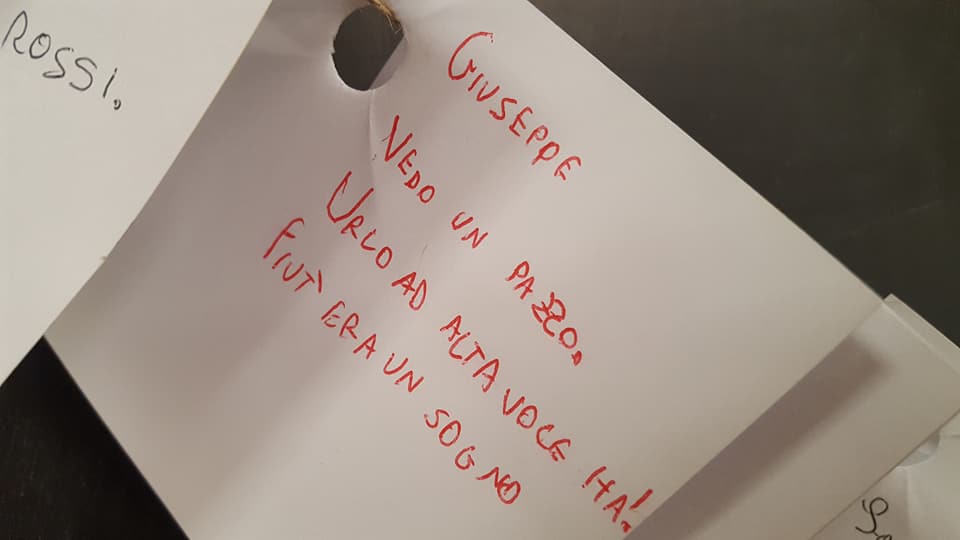 ROSSI.
GIUSEPPE
VEDO UN PAZZO.
URLO AD ALTA VOCE HA!
FIUT' ERA UN SOGNO